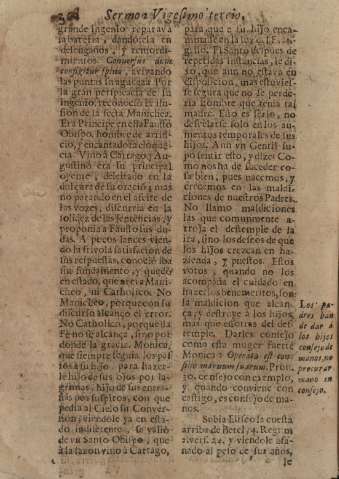 Sermon Vigesimo tercio,
grande ingenio reparava
sabateria, dandocela en
desengaños, y remordi-
mientos. Conversus dum
configitur spina, avivando
las puntas
la gran perspicacia de su
ingenio, reconoció la ilu-
sion de la secta Manichea.
Era Principe en esta Fausto
Obispo, hombre de artifi-
cio, y encantadora eloquen-
cia. Vino à Cartago, y Au-
gustino era su principal
oyente, deleitado en la
dulçura de su oracio; mas
no parando en el afeite de
las vozes, discurria en la
solidez de las sentencias, y
proponia a Fausto sus du-
das. A pocos lances vien-
do la frivola satisfacion de
sus respuestas, conoció ser
sin fundamento, y quedò
en estado, que ni era Mani-
cheo, ni Catholico. No
Manicheo, porque con su
discurso alcançò el error.
No Catholico, porque la
Fè no se alcança, sino por
donde la gracia. Monica,
que siempre seguia los pas-
sos à su hijo para hazer-
le hijo de sus ojos por la-
grimas, hija de sus entra-
ñas por suspiros, con que
pedia al Cielo su Conver-
sion, viendole ya en esta-
do indiferente, se valiò
de vn Santo Obispo, que
à la sazon vino à Cartago,
para que à su hijo enca-
minasse en la
gino. El Santo despues de
repetidas instancias, le di-
xo, que aun no estava en
disposicion, mas estuvies-
se segura que no se perde-
ria hombre que tenia tal
madre. Esto es serlo, no
desvelarse solo en los au-
mentos temporales de sus
hijos. Aun vn Gentil su-
po sentir esto, y dize: Co-
mo nos ha de suceder co-
sa bien, pues nacemos, y
crecemos en las maldi-
ciones de nuestros Padres.
No llamo maldiciones
las que comunmente ar-
roja el destemple de la
ira, sino los deseos de que
los hijos crezcan en ha-
zienda, y puestos. Estos
votos, quando no los
acompaña el cuidado en
hazerlos benemeritos, son
la maldicion que alcan-
ça, y destruye à los hijos,
mas que
destemple. Darles consejo
como esta muger fuerte
Monica: Operata est con-
silio manuum suarum. Proto,
es consejo con exemplo,
y quando conviene con
castigo, es consejo de ma-
nos.
Subia Eliseo la cuesta
arriba de Betel, 4. Regum
2. vers. 24. y viendole asa-
nado al peso de sus años,
se
Los pa-
dres han
de dar à
los hijos
consejo de
manos, no
procurar
mano en
consejo.